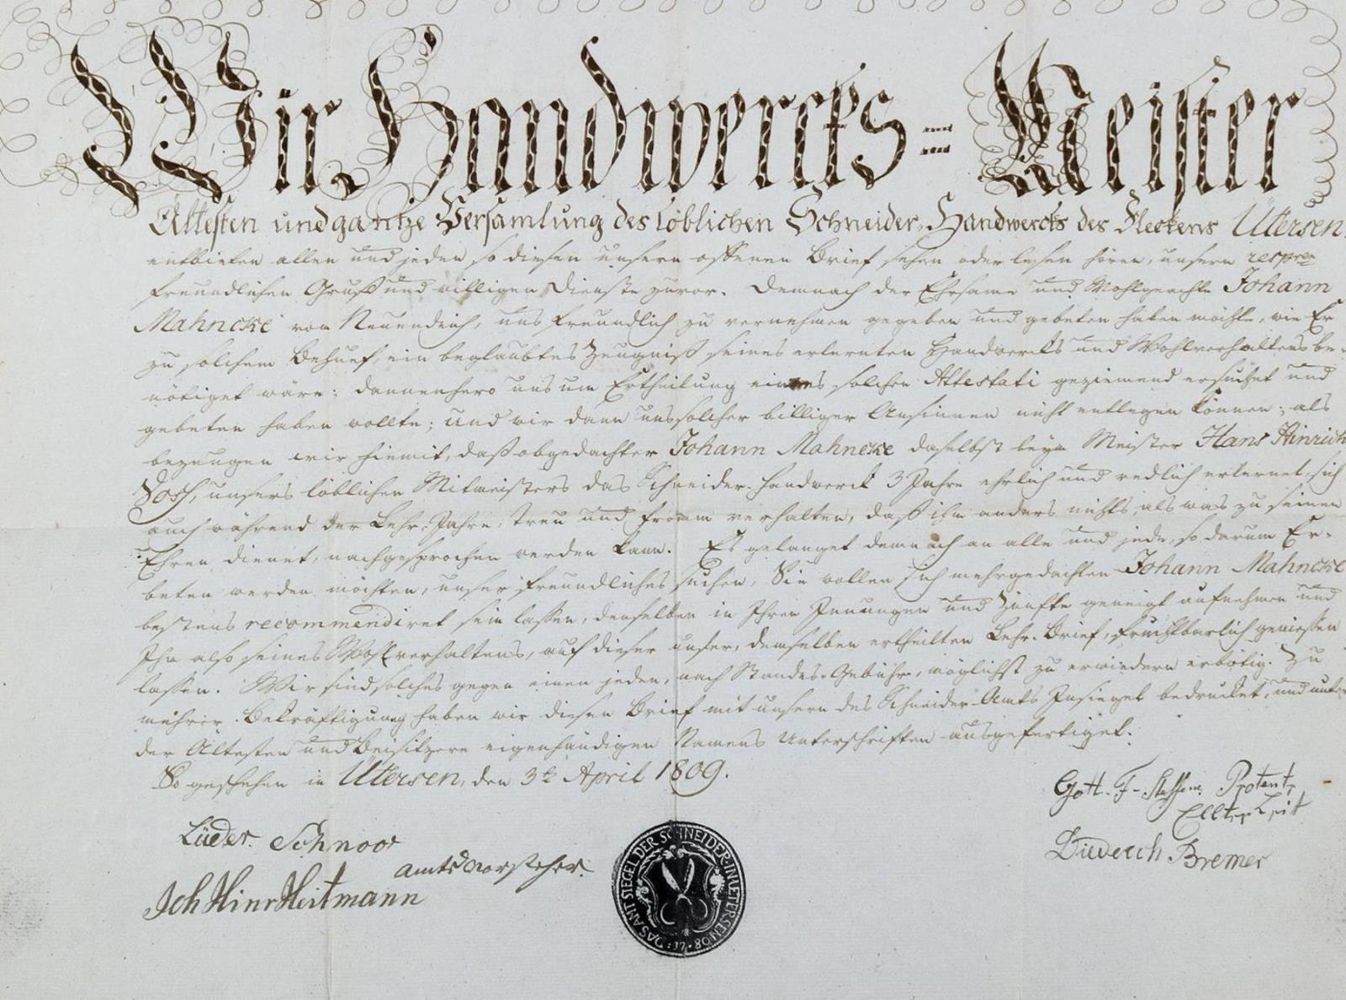 Wir Handwercks = Meister
Ältesten und gantze Versamlung des löblichen Schneider-Handwercks des Fleckens Ütersen
entbieten allen und jeden so diesen unsern offenen Brief sehen oder lesen hören, unsern
freundlichen Gruß und willigen Dienste zuvor. Demnach der Ehrsame und Wohlgeachte Johann
Mahncke von Neuendeich, uns freundlich zu vernehmen gegeben und gebeten haben möchte, wie Er
zu solchem Behuef, ein beglaubtes Zeugniß seines erlernten Handwercks und Wohlverhaltens be-
nötiget wäre; dannenhero uns um Ertheilung eines solchen Attestati geziemend ersuchet und
gebeten haben wollte; und wir dann uns solcher billiger Ansinnen nicht entlegen können; als
bezeugen wir hiemit, daß obgedachter Johann Mahncke daselbst beym Meister Hans Hinrich
Voß, unsers löblichen Mitmeisters das Schneider-Handwerck 3 Jahre ehrlich und redlich erlernet, sich
auch während der Lehr-Jahre, treu und fromm verhalten, daß ihm anders nichts als was zu seinen
Ehren dienet, nachgesprochen werden kann. Es gelanget demnach an alle und jede, so darum Er-
beten werden möchten, unser freundliches suchen, Sie wollen sich mehrgedachten Johann Mahncke
bestens recommendiret sein lassen, denselben in Ihren Innungen und Zünfte geneigt aufnehmen und
Ihn also seines Wohlverhaltens, auf dieser unser, demselben ertheilten Lehr-Brief, fruchtbarlich geniessen
lassen. Wir sind solches gegen einen jeden, nach Standes-Gebühr, möglichst zu erwiedern erbötig. Zu
mehrer Bekräftigung haben wir diesen Brief mit unsern des Schneider-Amts Insiegel bedrucket, und unter
der Ältesten und Beisitzern eigenhändigen Namens Unterschriften ausgefertiget.
So geschehen in Ütersen, den 3t April 1809.
Gott. F.
Lüder Schnoor
Amtsvorsteher
Diederich Bremer
Joh Hinr Heitmann
DAS AMT SIEGEL DER SCHNEIDER IN UETERSEN 1708